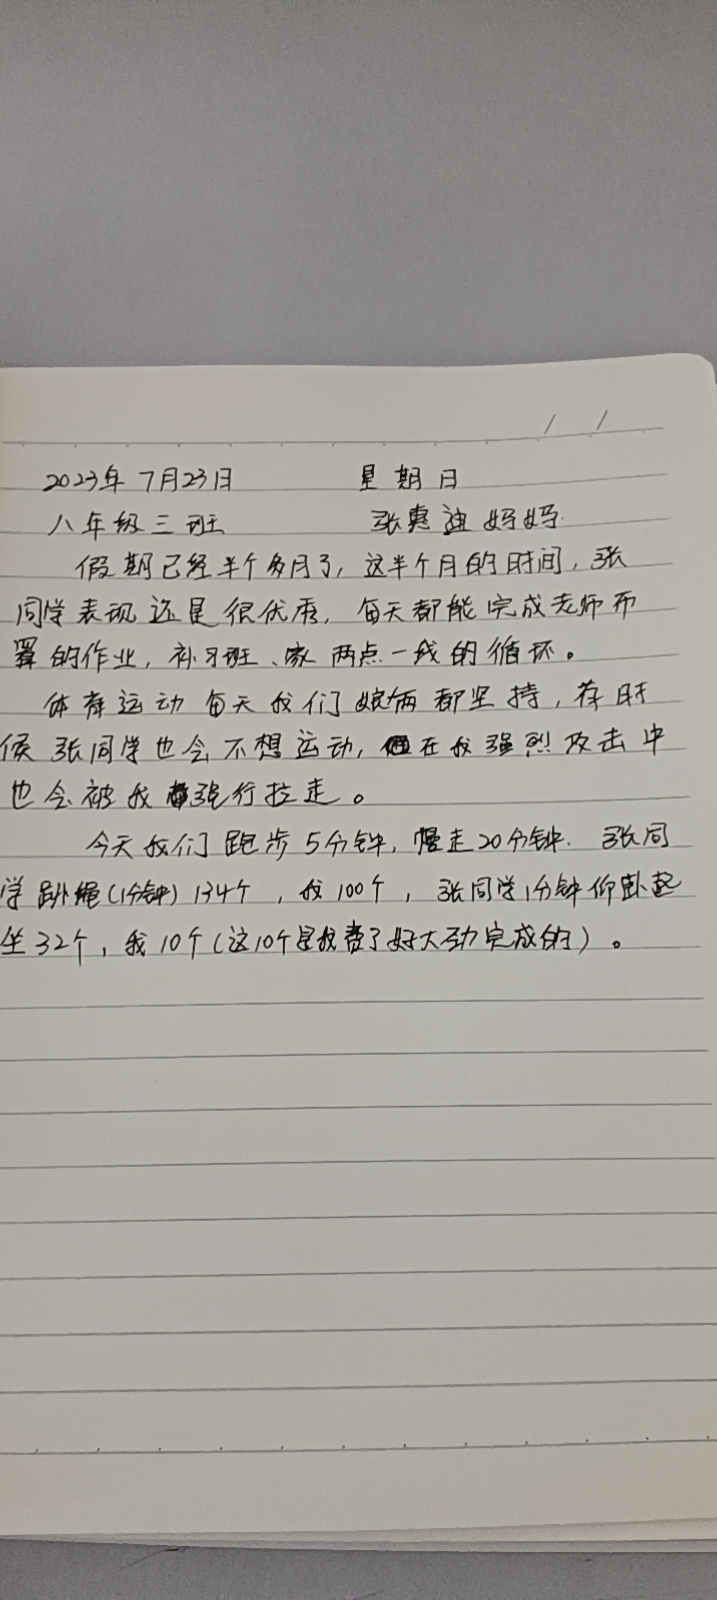 2023年7月23日 星期日
八年级三班 张惠迪妈妈
假期已经半个多月了,这半个月的时间,张
同学表现还是很优秀,每天都能完成老师布
署的作业,补习班、家两点一线的循环。
体育运动每天我们娘俩都坚持,有时
候张同学也会不想运动,但在我强烈攻击中
也会被我强行拉走。
今天我们跑步5分钟,慢走20分钟.张同
学跳绳(1分钟)134个,我100个,张同学1分钟仰卧起
坐32个,我10个(这10个是我费了好大劲完成的)。